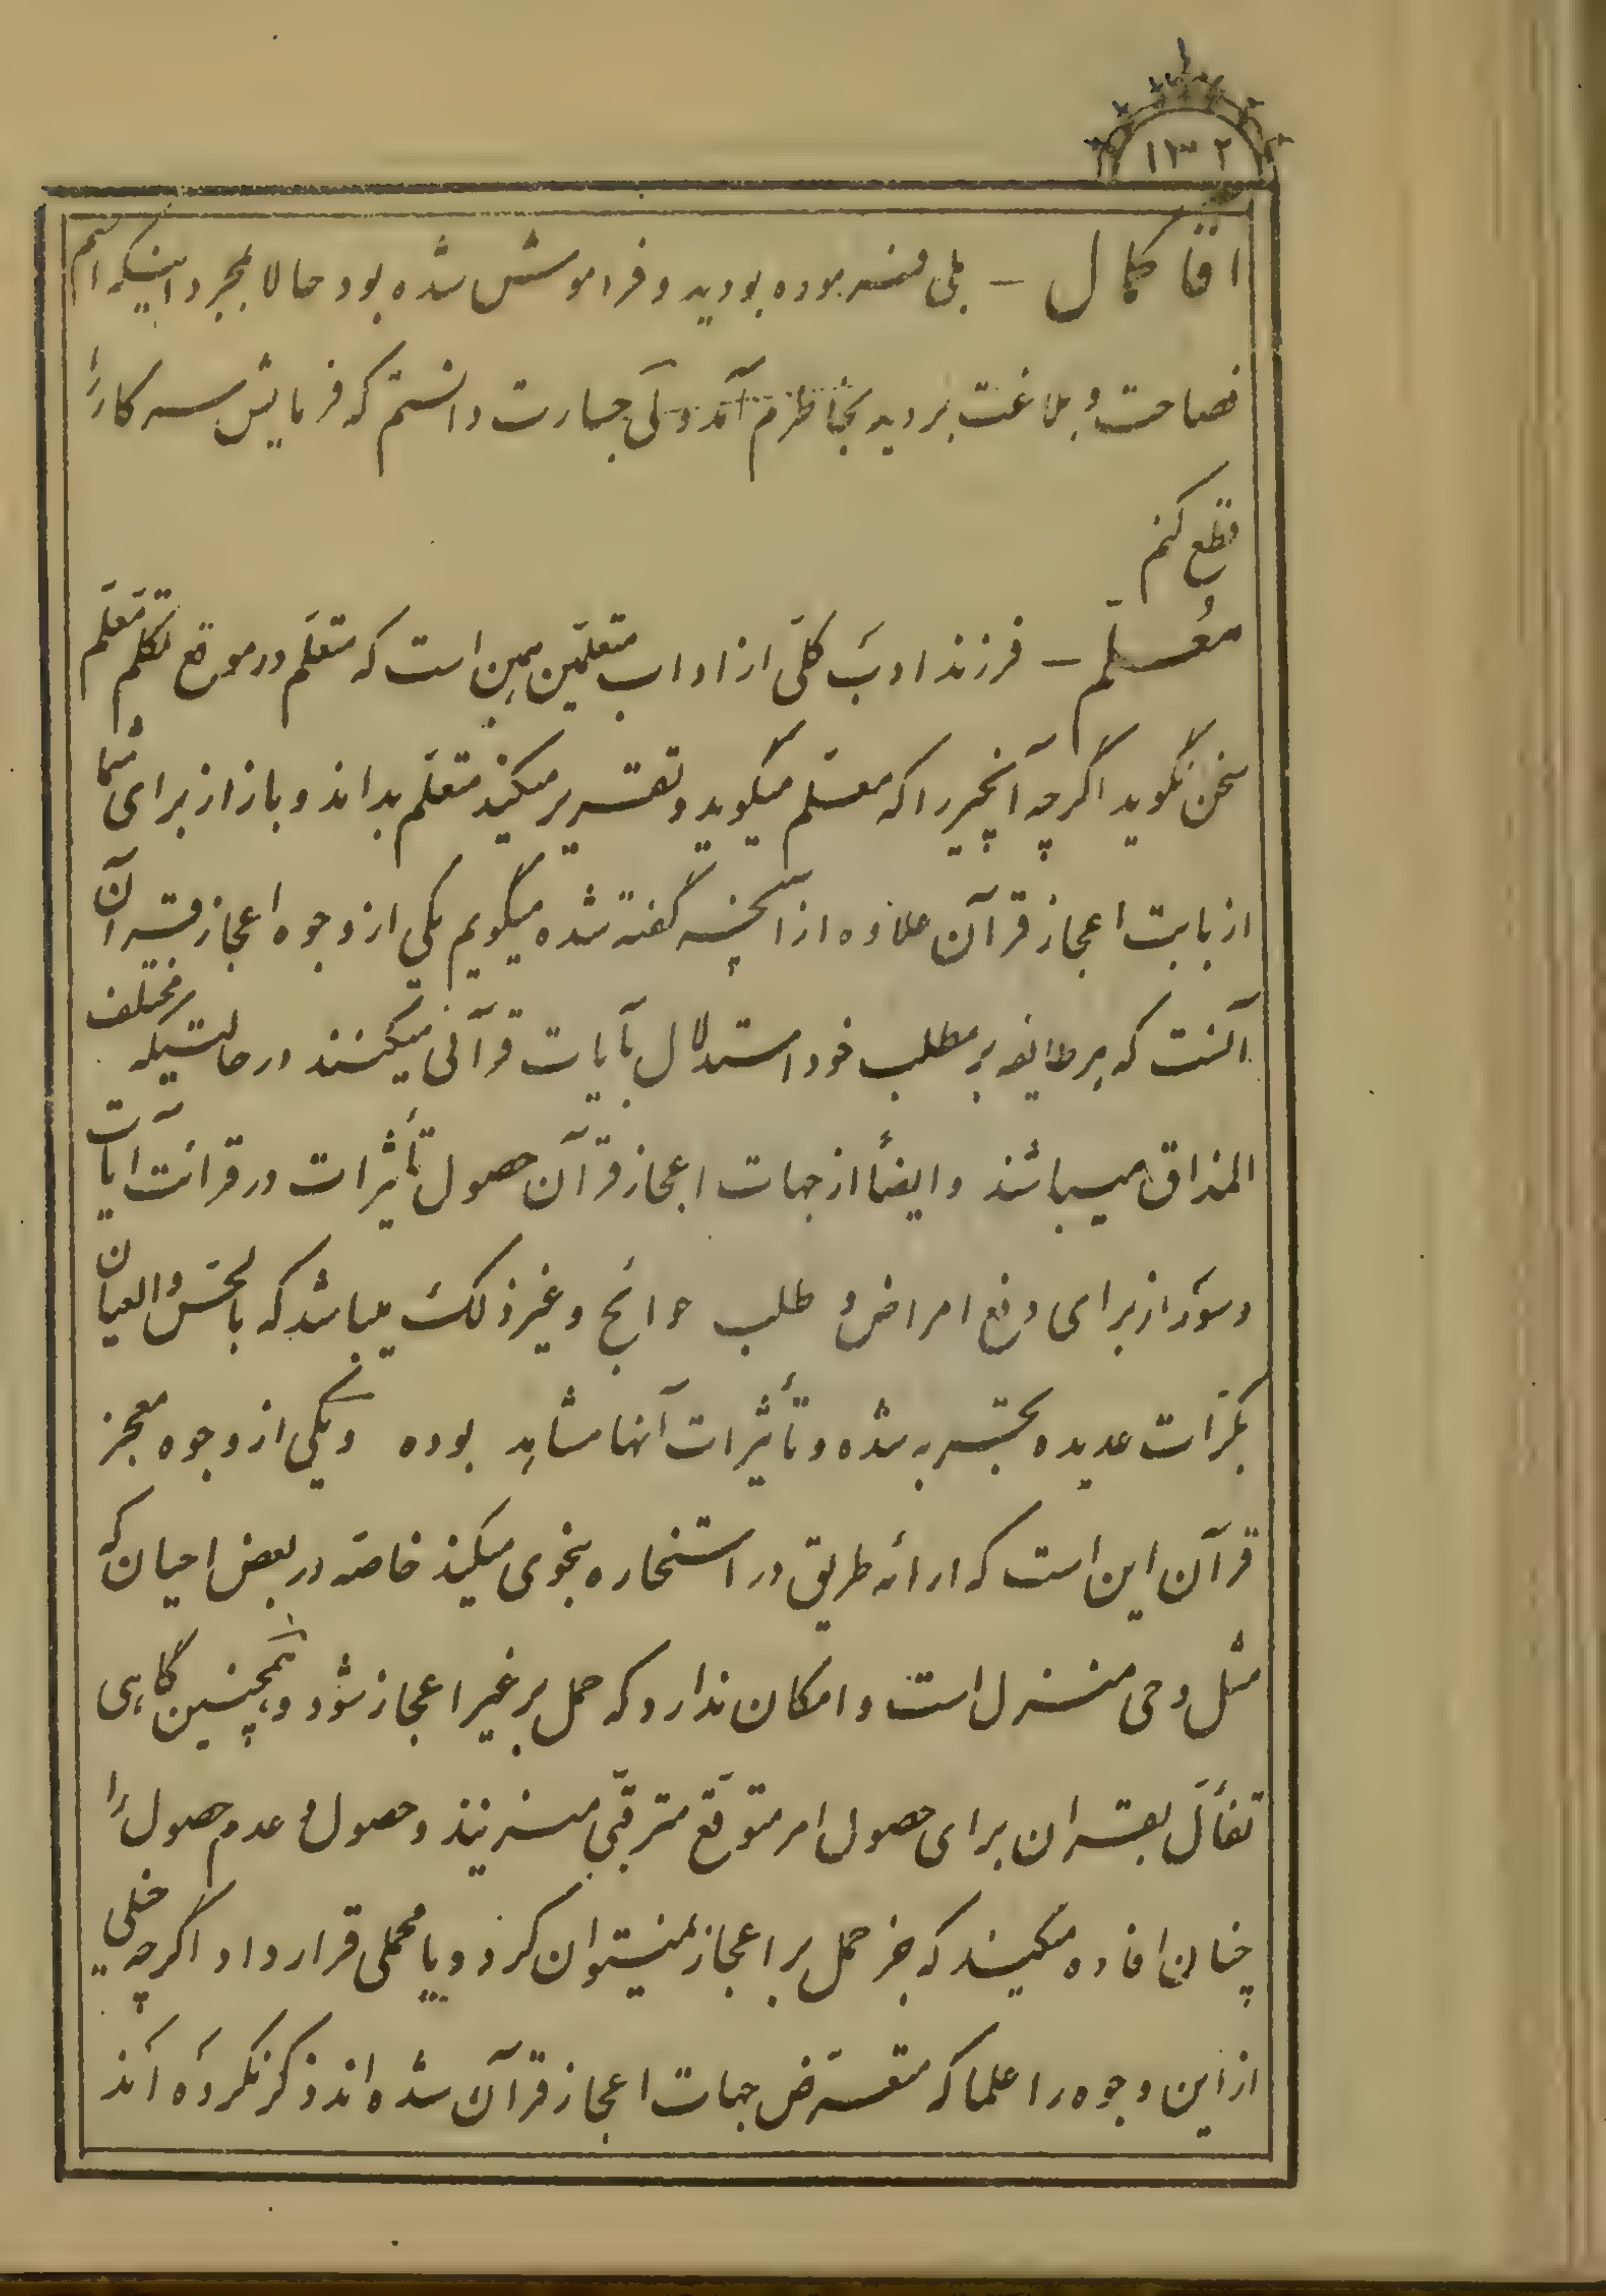 ۱۳۲
اقا کمال – بلی فرموده بودید و فراموشش شده بود حالا بمجرد اینکه اسم
فصاحت و بلاغت بردید بخاطرم آمد ولی جسارت دانستم که فرمایش سرکار را
قطع کنم
معُلّم – فرزند ادبَ کلّی از اداب متعلمّین همین است که متعلّم در موقع تکلّم معَلّم
سخن نگوید اگرچه آنچیز را که معلّم میگوید و تقریر میکند متعلّم بداند و باز از برای شما
از بابت اعجاز قرآن علاوه از آنچه گفته شده میگویم یکی از وجوه اعجاز قرآن
آنست که هر طایفه بر مطلب خود استدلال بآیات قرآنی میکنند در حالتیکه مختلف
المذاق میباشند و ایضاً از جهات اعجاز قرآن حصول تأثیرات در قرائت آیات
و سوَر از برای دفع امراض و طلب حوائج و غیر ذلک میباشد که بالحسّ والعیان
بکرّات عدیده تجربه شده و تأثیرات آنها مشاهد بوده و یکی از وجوه معجز
قرآن این است که ارائه طریق در استخاره بنحوی میکند خاصّه در بعض احیان که
مثل وحی منزل است و امکان ندارد که حمل بر غیر اعجاز شود و همچنین گاهی
تفأل بقران برای حصول امر متوقّع مترقّبی میزنند و حصول و عدم حصول را
چنان افاده میکند که جز حمل بر اعجاز نمیتوان کرد و یا محملی قرار داد اگرچه خیلی
از این وجوه را علما که متعرّض جهات اعجاز قرآن شده اند ذکر نکرده اند